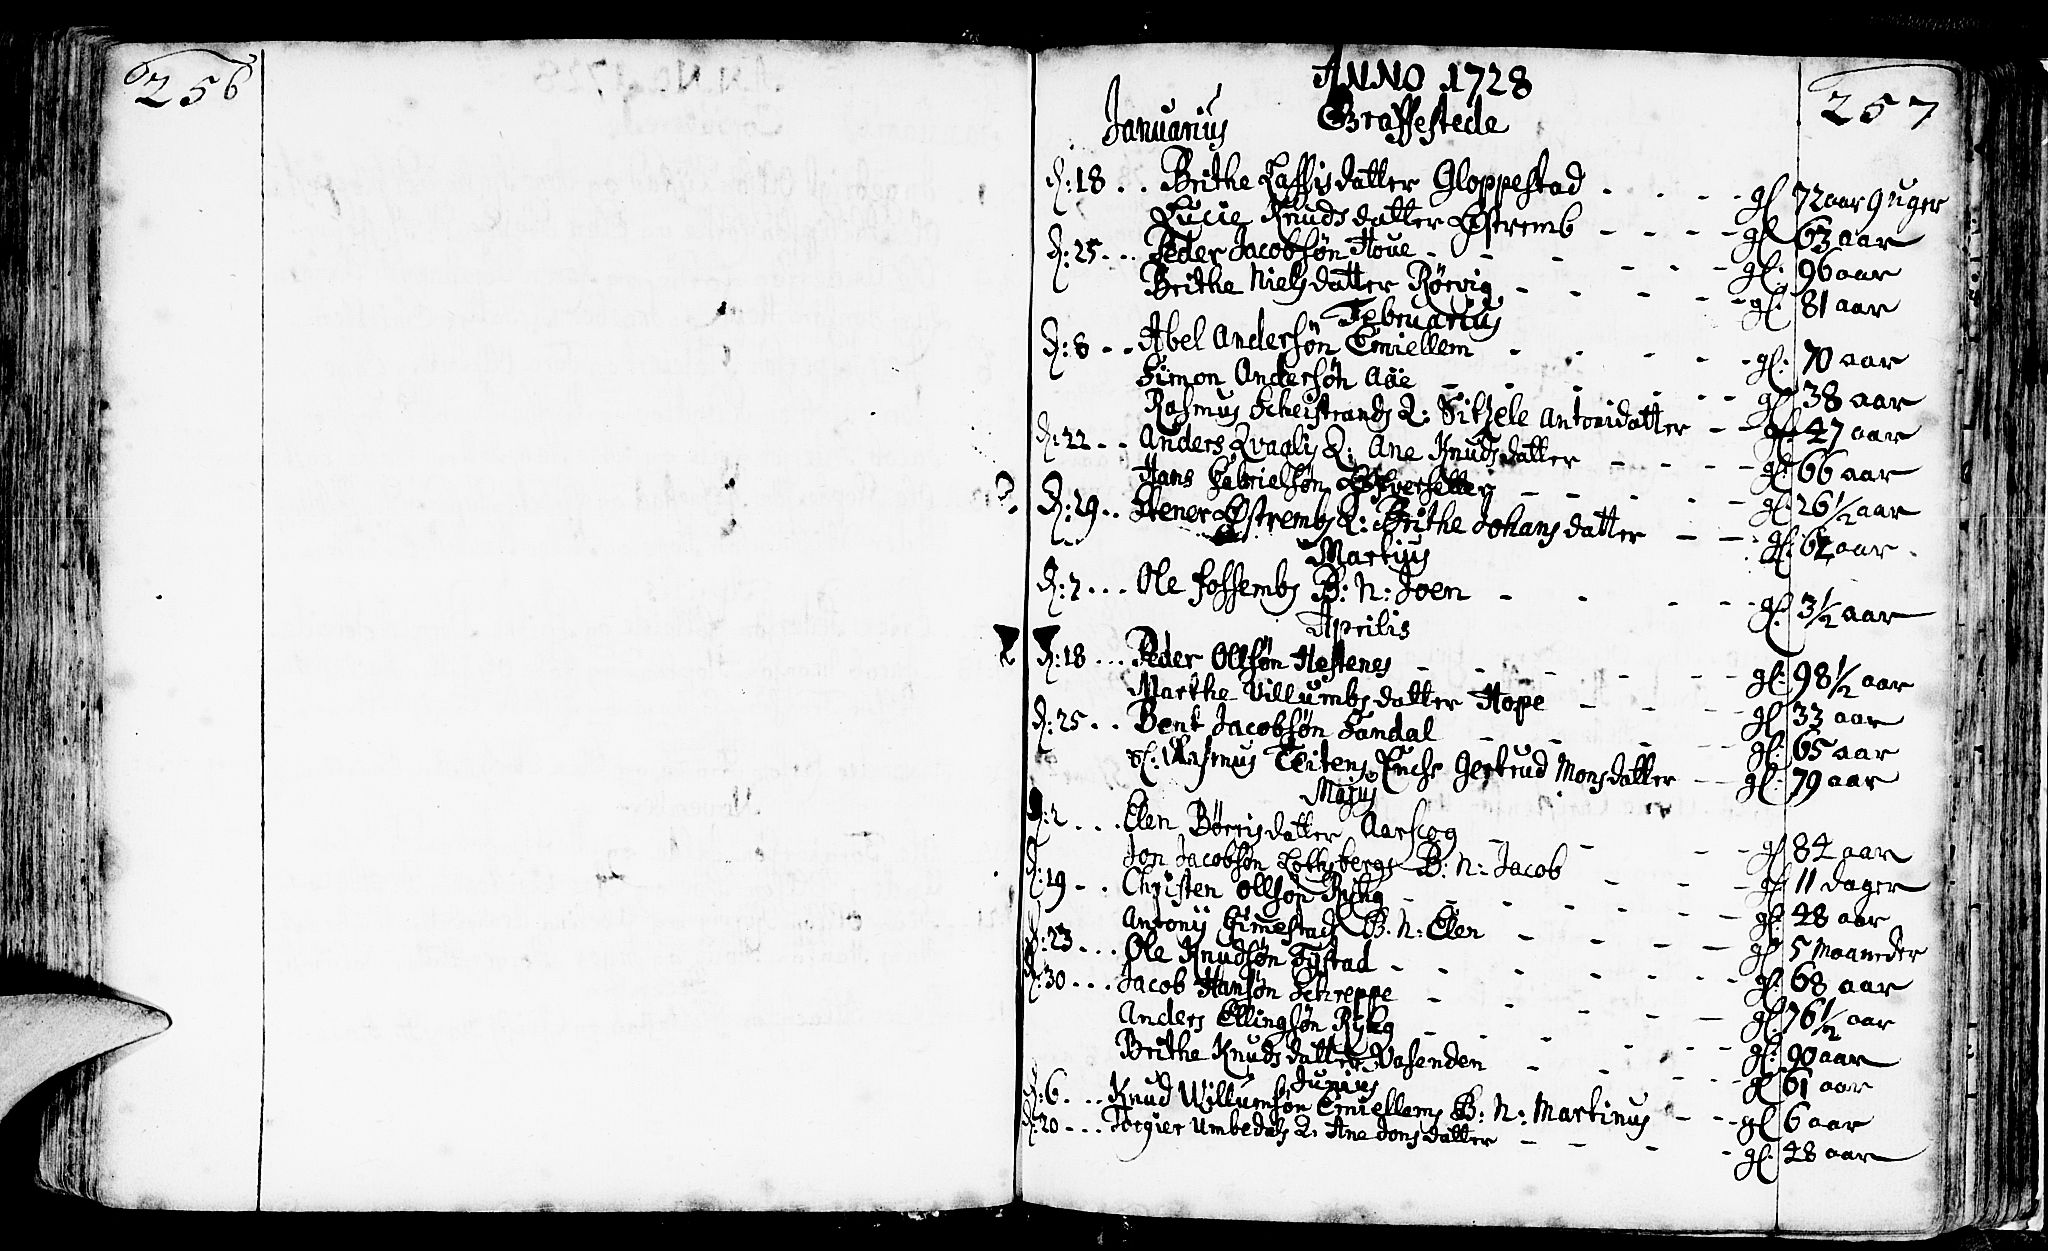 256
257
ANNO 1728
Januarius Graffestede
d: 18 . . Brithe Lassisdatter Gloppestad . . . - - gl 72 aar 9 uger
Lucie Knudsdatter Østremb - - - - gl 63 aar
d: 25 . . . Peder Jacobsøn Houe - - - - - gl: 96 aar
Brithe Nielsdatter Rørvig - - - - - gl: 81 aar
Februarius
d: 8 - - Abel Andersøn Emiellem - - - - - gl: 70 aar
Simon Andersøn Aäe - - - - - gl 38 aar
Rasmus Scheistrands Q: Sitzele Antonidatter - - gl: 47 aar
d: 22 - - Anders Qvaglis Q: Ane Knudsdatter - - - - gl: 66 aar
Hans Gabrielsøn - - - - gl: 26 1/2 aar
d: 29 . . Stener Østrembs Q: Brithe Johansdatter - - gl: aar
Martius
d: 7 . . . Ole Fossembs B: N: Joen - - - - gl: 3 1/2 aar
Aprilis
d: 18 . . . Peder Ollsøn Hestenes - - - - - gl: 98 1/2 aar
Marthe Villumbsdatter Hope - - - - gl 33 aar
d: 25 . . Bent Jacobsøn Sandal - - - - gl: 65 aar
Sl: Rasmus Teitens Enche Gertrud Monsdatter - - gl: 79 aar
Majus
d: 2 . . . Elen Børrisdatter Aarscog - - - gl 84 aar
Jon Jacobsøn B: N: Jacob - - - gl 11 dager
d: 19 - . . Christen Ollsøn Ryhg - - - - - gl: 48 aar
Antonij Gimestads B: N: Elen - - - - gl 5 maaneder
d: 23 . . . Ole Knudsøn Tystad - - - - - gl: 68 aar
d: 30 . . . Jacob Hansøn Schreppe - - - - - gl: 76 1/2 aar
Anders Ellingsøn Ryhg - - - - - gl: 90 aar
Brithe Knudsdatter Vasenden - - - - gl 61 aar
Junius
d: 6 . . . Knud Willumsøn Emiellems B: N: Martinus - - gl 6 aar
d: 20 - . . Torgier Umbedals Q: Ane Jonsdatter - - - - gl: 48 aar